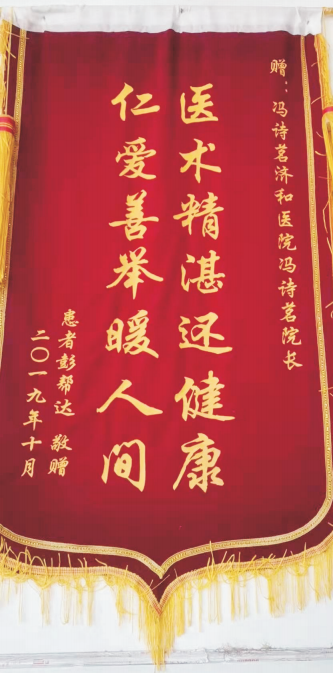 赠：冯诗茗济和医院冯诗茗院长
医术精湛还健康
仁爱善举暖人间
患者彭帮达 敬赠
二〇一九年十月